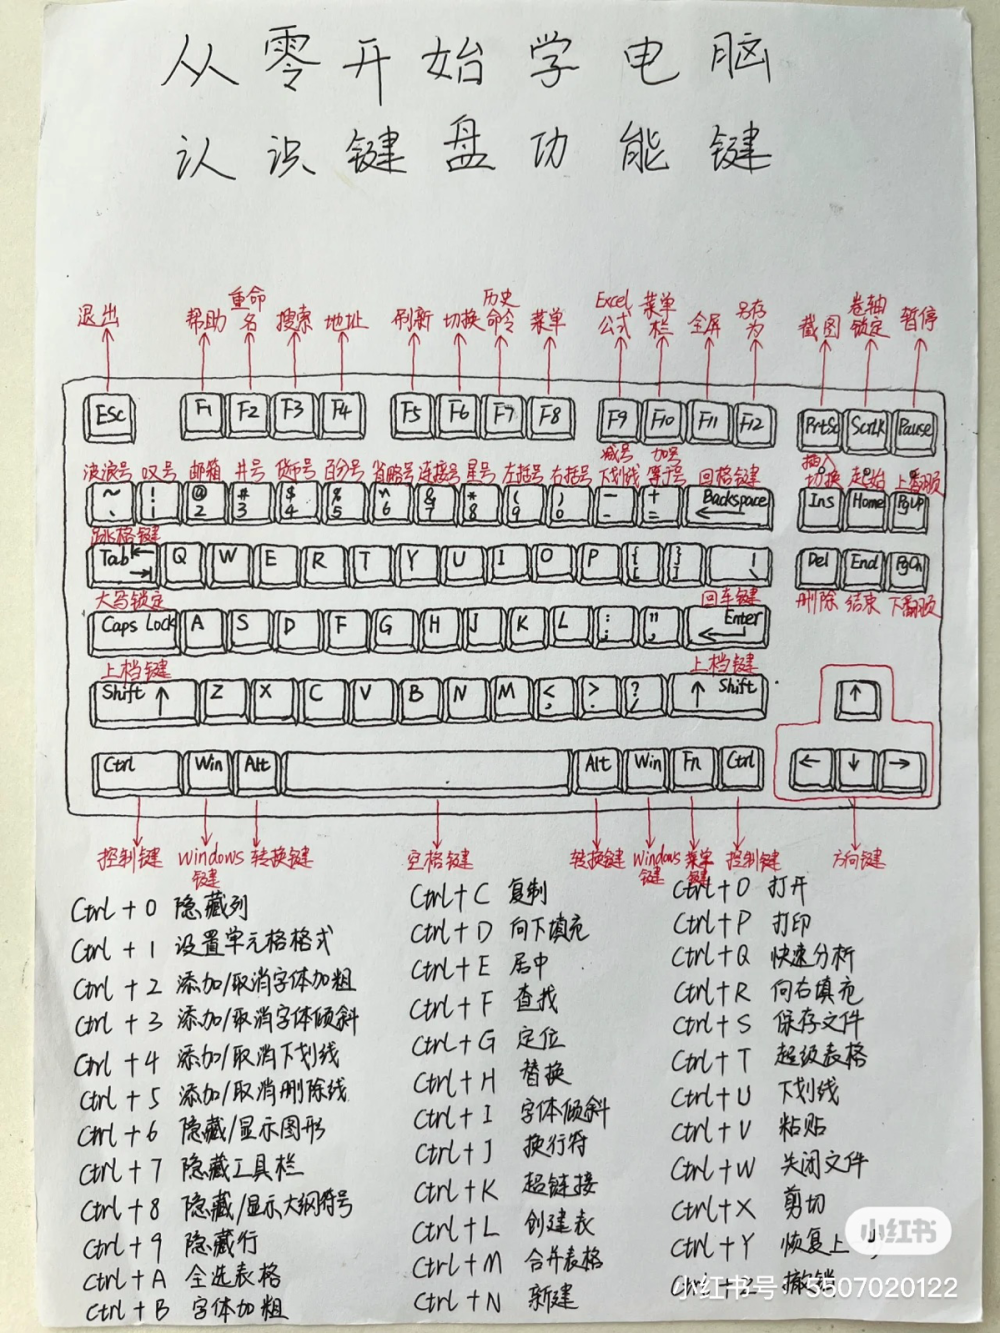 从零开始学电脑
认识键盘功能键
退出 帮助 重命名 搜索 地址 刷新 切换 历史命令 菜单 Excel公式 菜单栏 全屏 另存为 截图 卷轴锁定 暂停
Esc F1 F2 F3 F4 F5 F6 F7 F8 F9 F10 F11 F12 PrtSc ScrLK Pause
波浪号 叹号 邮箱 井号 货币号 百分号 省略号 连接号 星号 左括号 右括号 减号下划线 加号等于号 回格键 插入切换 起始 上翻页
~ ! @ # $ % ^ & * ( ) - + Backspace Ins Home PgUp
` 1 2 3 4 5 6 7 8 9 0 - =
跳格键
Tab Q W E R T Y U I O P { } | Del End PgDn
[ ] \
大写锁定 回车键 删除 结束 下翻页
Caps Lock A S D F G H J K L : " Enter
; ,
上档键 上档键
Shift ↑ Z X C V B N M < > ? ↑ Shift ↑
, . /
Ctrl Win Alt Alt Win Fn Ctrl ← ↓ →
控制键 Windows键 转换键 空格键 转换键 Windows键 菜单键 控制键 方向键
Ctrl + 0 隐藏列
Ctrl + 1 设置单元格格式
Ctrl + 2 添加/取消字体加粗
Ctrl + 3 添加/取消字体倾斜
Ctrl + 4 添加/取消下划线
Ctrl + 5 添加/取消删除线
Ctrl + 6 隐藏/显示图形
Ctrl + 7 隐藏工具栏
Ctrl + 8 隐藏/显示大纲符号
Ctrl + 9 隐藏行
Ctrl + A 全选表格
Ctrl + B 字体加粗
Ctrl + C 复制
Ctrl + D 向下填充
Ctrl + E 居中
Ctrl + F 查找
Ctrl + G 定位
Ctrl + H 替换
Ctrl + I 字体倾斜
Ctrl + J 换行符
Ctrl + K 超链接
Ctrl + L 创建表
Ctrl + M 合并表格
Ctrl + N 新建
Ctrl + O 打开
Ctrl + P 打印
Ctrl + Q 快速分析
Ctrl + R 向右填充
Ctrl + S 保存文件
Ctrl + T 超级表格
Ctrl + U 下划线
Ctrl + V 粘贴
Ctrl + W 关闭文件
Ctrl + X 剪切
Ctrl + Y 恢复上
Ctrl + Z 撤销
小红书
小红书号：5507020122